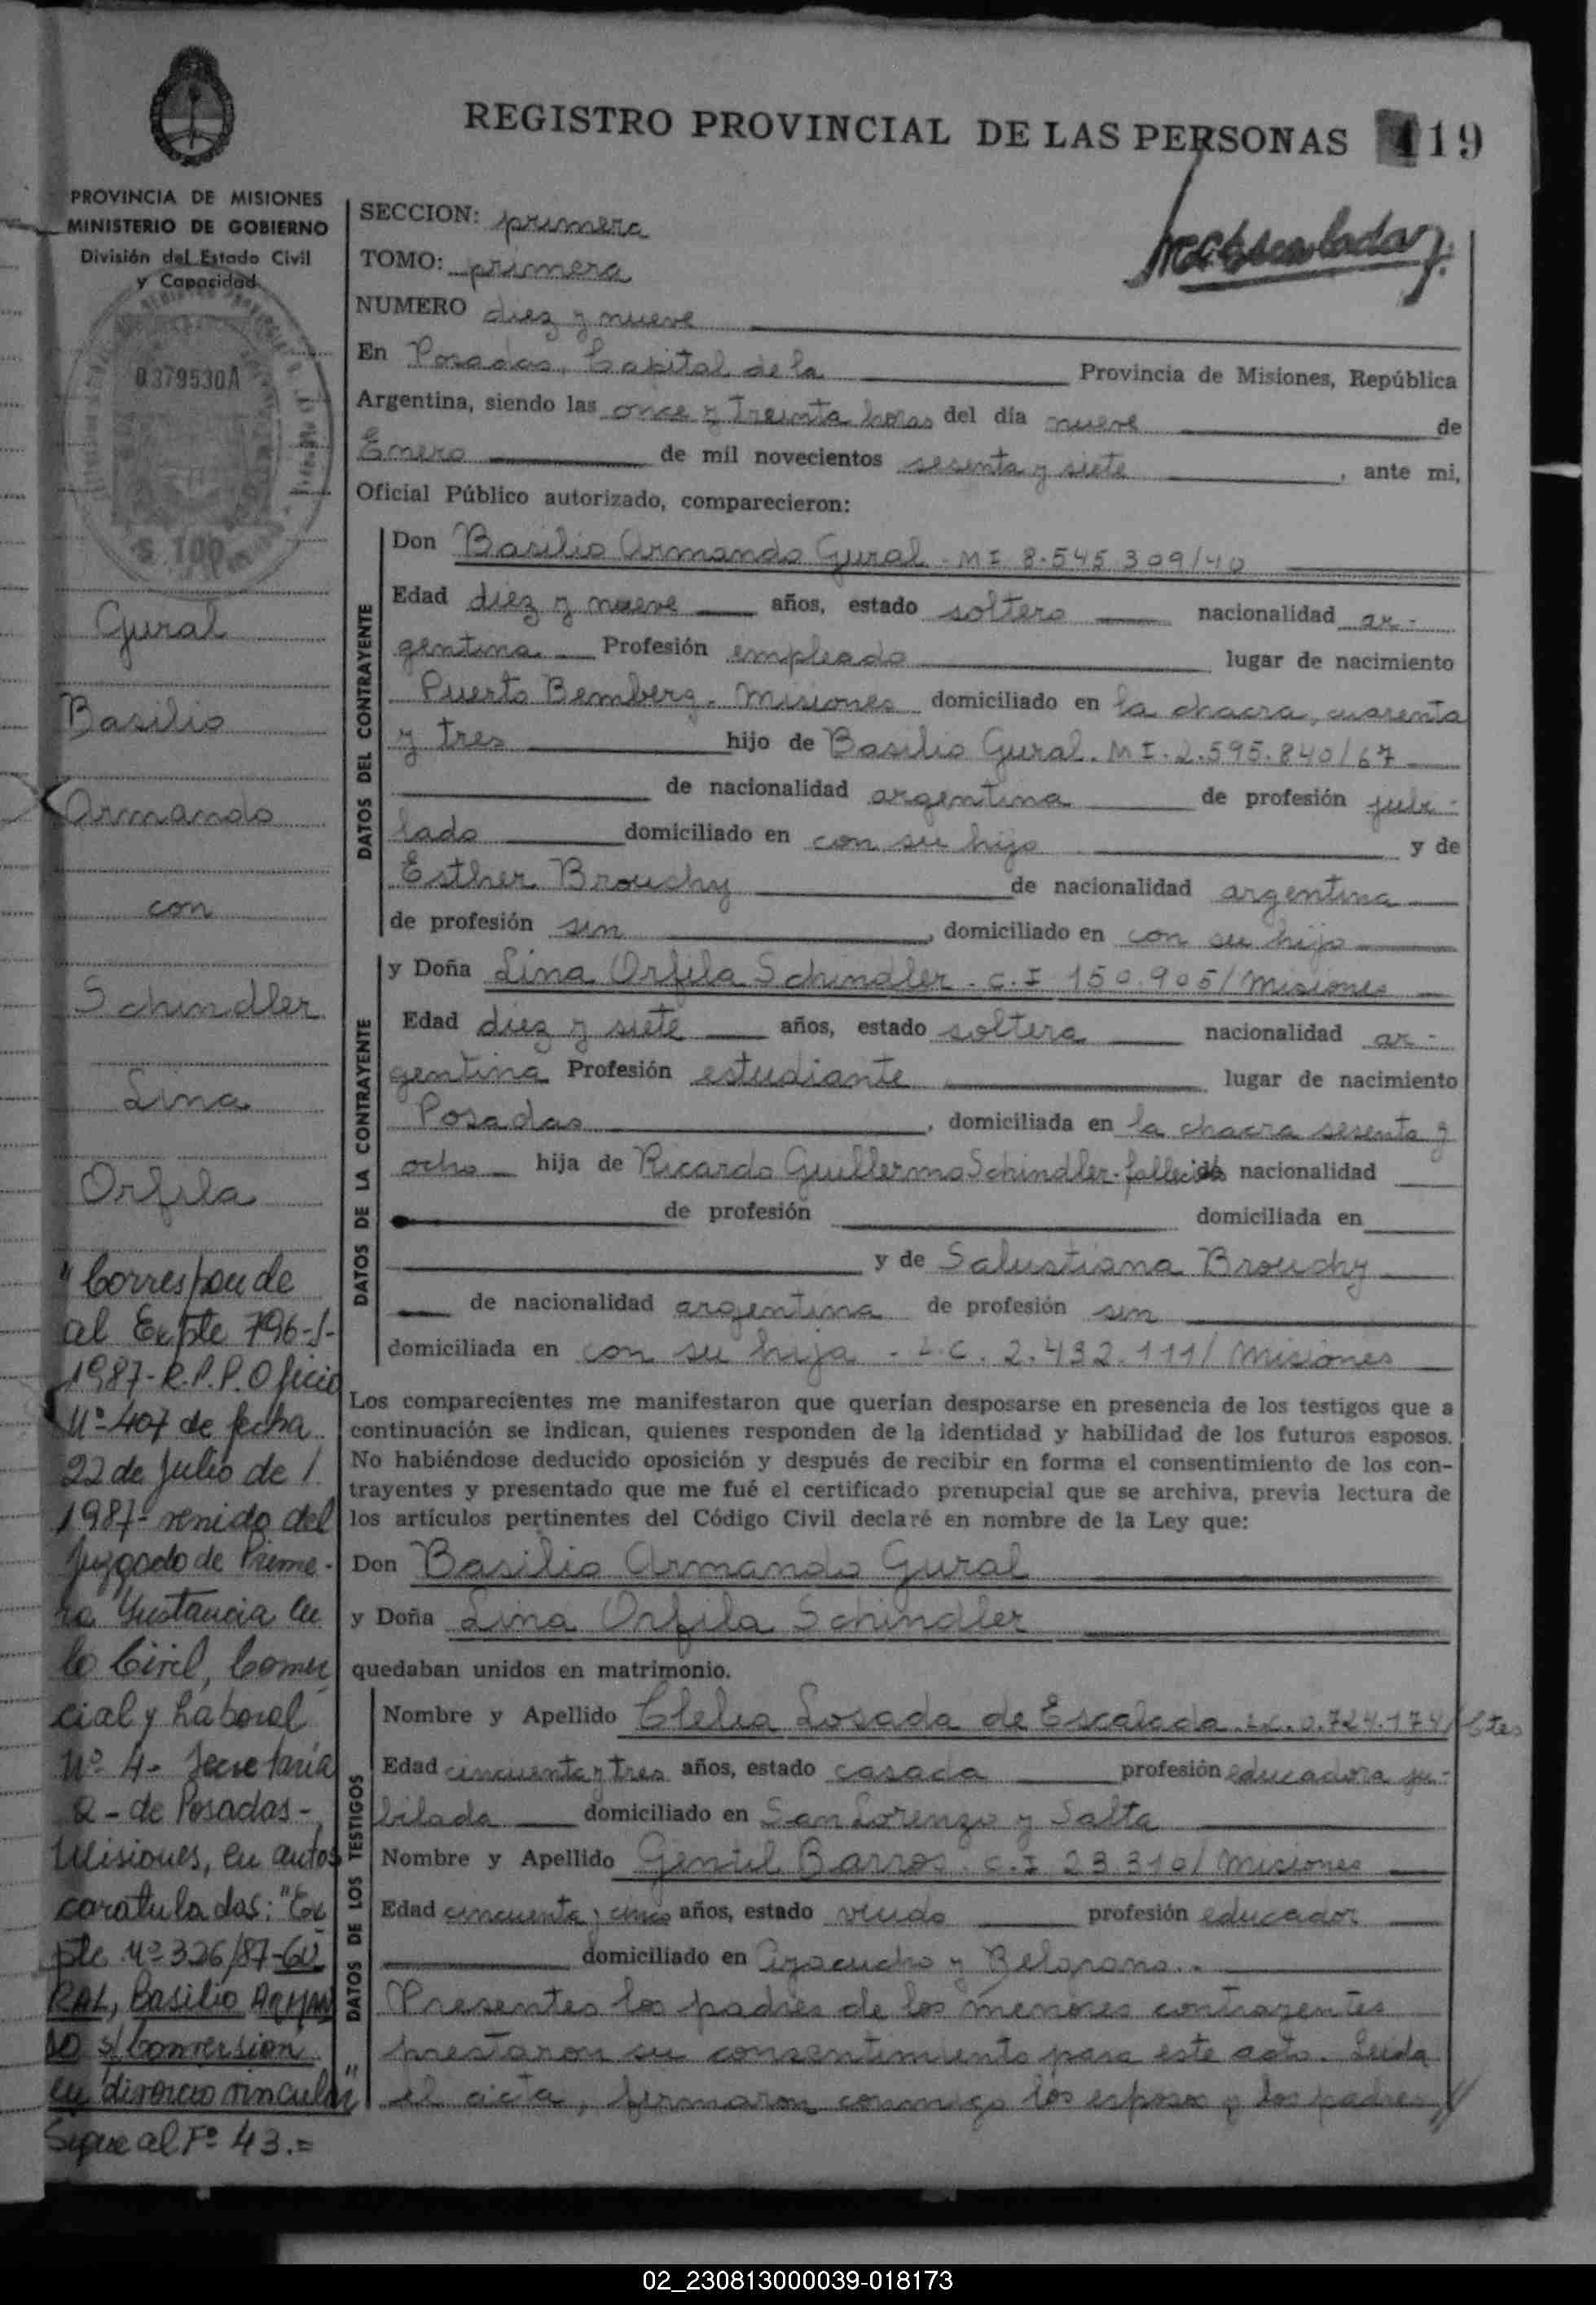 REGISTRO PROVINCIAL DE LAS PERSONAS 119
PROVINCIA DE MISIONES
MINISTERIO DE GOBIERNO
División del Estado Civil
y Capacidad
0379530A
$ 100
Gural
Basilio
Armando
con
Schindler
Lina
Orfila
"Corresponde
al Expte 796-S-
1987-R.P.P. Oficio
Nº 407 de fecha
22 de Julio de
1987- venido del
Juzgado de Prime-
ra Instancia en
lo Civil, Comer
cial y Laboral
Nº 4- Secretaría
2- de Posadas-
Misiones, en autos
caratulados: "Ex
pte Nº 326/87-GU
RAL, Basilio ARMAN
DO s/ Conversion
en divorcio vincular"
Sigue al Fº 43.=
SECCION: primera
TOMO: primera
NUMERO diez y nueve
En Posadas, Capital de la Provincia de Misiones, República
Argentina, siendo las once y treinta horas del día nueve de
Enero de mil novecientos sesenta y siete, ante mi,
Oficial Público autorizado, comparecieron:
DATOS DEL CONTRAYENTE
Don Basilio Armando Gural - MI 8.545.309/40
Edad diez y nueve años, estado soltero nacionalidad ar-
gentina Profesión empleado lugar de nacimiento
Puerto Bemberg - Misiones domiciliado en la chacra, cuarenta
y tres hijo de Basilio Gural. MI. 2.595.840/67
de nacionalidad argentina de profesión jubi-
lado domiciliado en con su hijo y de
Esther Brouchy de nacionalidad argentina
de profesión sin, domiciliado en con su hijo
DATOS DE LA CONTRAYENTE
y Doña Lina Orfila Schindler - C.I 150.905/Misiones
Edad diez y siete años, estado soltera nacionalidad ar-
gentina Profesión estudiante lugar de nacimiento
Posadas, domiciliada en la chacra sesenta y
ocho hija de Ricardo Guillermo Schindler-fallecido nacionalidad
de profesión domiciliada en
y de Salustiana Brouchy
de nacionalidad argentina de profesión sin
domiciliada en con su hija - L.C. 2.432.111/Misiones
Los comparecientes me manifestaron que querían desposarse en presencia de los testigos que a
continuación se indican, quienes responden de la identidad y habilidad de los futuros esposos.
No habiéndose deducido oposición y después de recibir en forma el consentimiento de los con-
trayentes y presentado que me fué el certificado prenupcial que se archiva, previa lectura de
los artículos pertinentes del Código Civil declaré en nombre de la Ley que:
Don Basilio Armando Gural
y Doña Lina Orfila Schindler
quedaban unidos en matrimonio.
DATOS DE LOS TESTIGOS
Nombre y Apellido Clelia Losada de Escalada. L.C. 0.724.174/Ctes
Edad cincuenta y tres años, estado casada profesión educadora ju-
bilada domiciliado en San Lorenzo y Salta
Nombre y Apellido Gentil Barros. C.I 23.310/Misiones
Edad cincuenta y cinco años, estado viudo profesión educador
domiciliado en Ayacucho y Belgrano.
Presentes los padres de los menores contrayentes
prestaron su consentimiento para este acto. Leida
el acta, firmaron conmigo los esposos y los padres,//
02_230813000039-018173